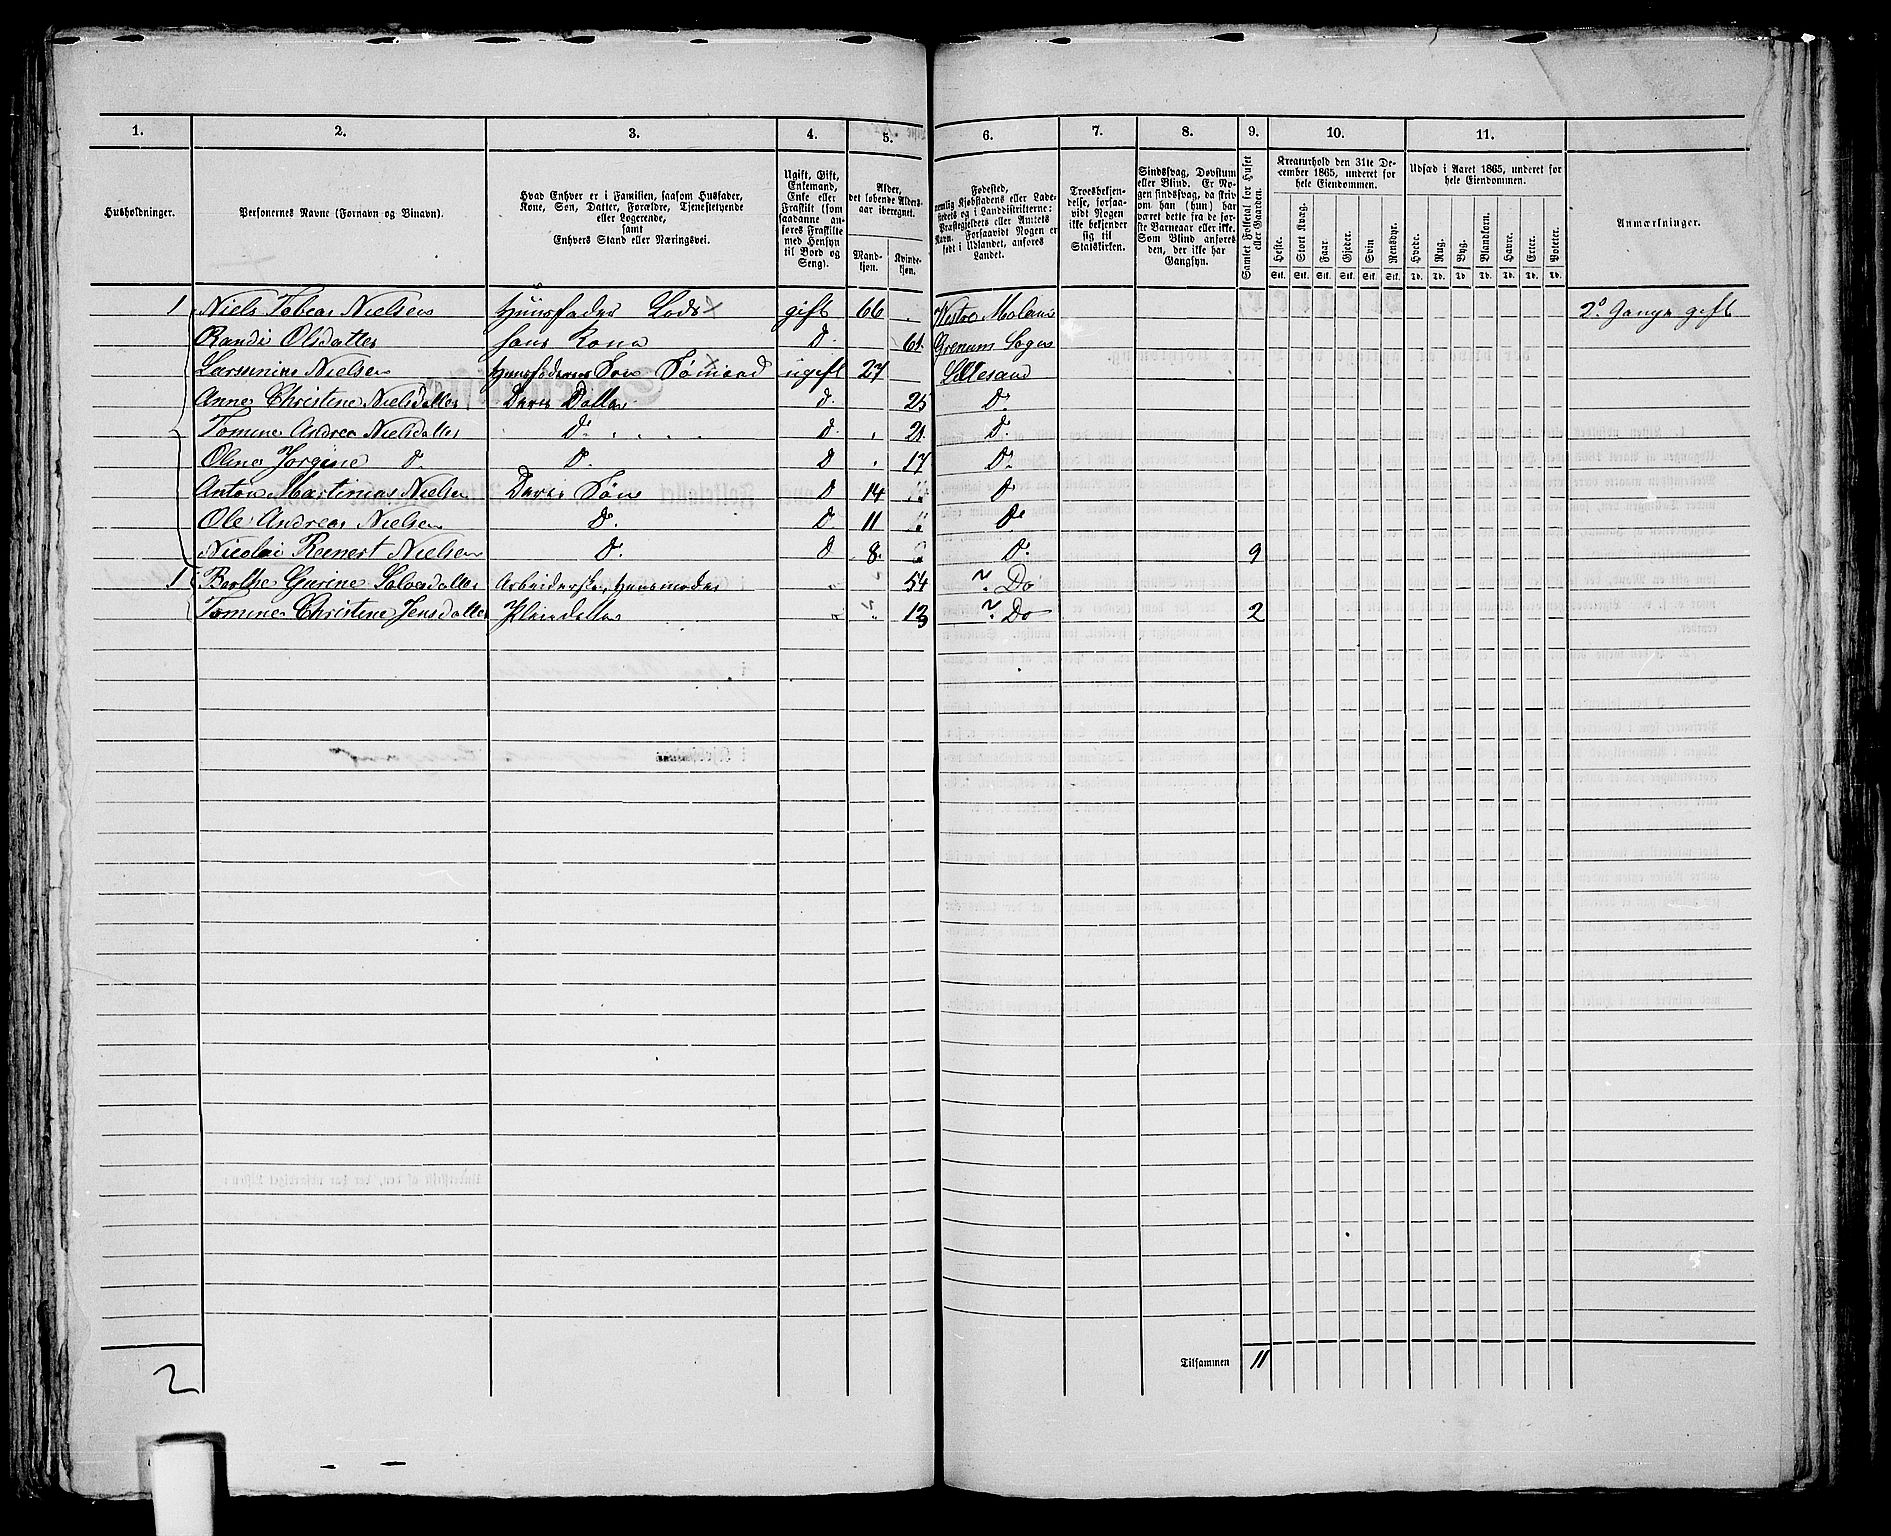 1. 2. 3. 4. 5. 6. 7. 8. 9. 10. 11.
Husholdninger.
Personernes Navne (Fornavn og Binavn).
Hvad Enhver er i Familien, saasom Husfader,
Kone, Søn, Datter, Forældre, Tjenestetyende
eller Logerende,
samt
Enhvers Stand eller Næringsvei.
Ugift, Gift,
Enkemand,
Enke eller
Fraskilt (som
saadanne an-
føres Fraskilte
med Hensyn
til Bord og
Seng).
Alder,
det løbende Alders-
aar iberegnet.
Mand-
kjøn.
Kvinde-
kjøn.
Fødested,
nemlig Kjøbstadens eller Lade-
stedets og i Landdistrikterne:
Præstegjeldets eller Amtets
Navn. Forsaavidt Nogen er
født i Udlandet, anføres
Landet.
Troesbekjen-
delse, forsaa-
vidt Nogen
ikke bekjender
sig til
Statskirken.
Sindssvag, Døvstum
eller Blind. Er No-
gen sindssvag, da skriv
om han (hun) har
været dette fra de før-
ste Barneaar eller ikke.
Som Blind anføres
den, der ikke har
Gangsyn.
Samlet Folketal for Huset
eller Gaarden.
Kreaturhold den 31te De-
cember 1865, underet for
hele Eiendommen.
Heste. Stort Kvæg. Faar. Gjeder. Svin. Rensdyr.
Stk. Stk. Stk. Stk. Stk. Stk.
Udsæd i Aaret 1865, underet for
hele Eiendommen.
Hvede. Rug. Byg. Blandkorn. Havre. Erter. Poteter.
Td. Td. Td. Td. Td. Td. Td.
Anmærkninger.
1 Niels Tobias Nielsen Huusfader Lods gift 66 Westre Moland 2º Gange gift
Randi Olsdatter hans Kone D. 61. Grenum Sogn
Larsinius Nielsen Huusfaderens Søn Sømand ugift 27 Lillesand
Anne Christine Nielsdatter Deres Datter D. 25 D.
Tomine Andrea Nielsdatter D. D. 21. D.
Oline Jorgine D. D. D 17 D.
Anton Martinius Nielsen Deres Søn D 14 D
Ole Andreas Nielsen D. D 11 D
Nicolai Reinert Nielsen D. D 8. D. 9
1 Berthe Gurine Salvesdatter Arbeiderske, Huusmoder 54 Do
Tomine Christine Jensdatter Pleiedatter 13 Do 2
2
Tilsammen 11